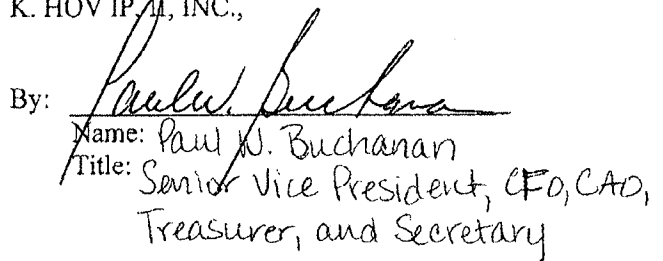 K. HOV IP, II, INC.,
By: Paul W. Buchanan
Name: Paul W. Buchanan
Title: Senior Vice President, CFO, CAO,
Treasurer, and Secretary